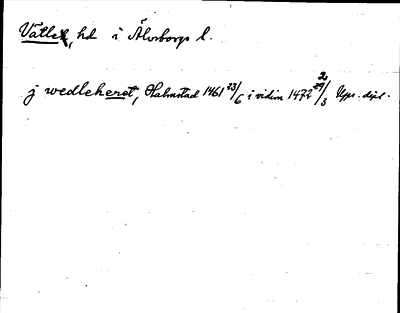 Vätle, hd i Älvsborgs l.
j wedleheret, Halmstad 1461 23/6 i vidim 1472 2/3 Upps. dipl.